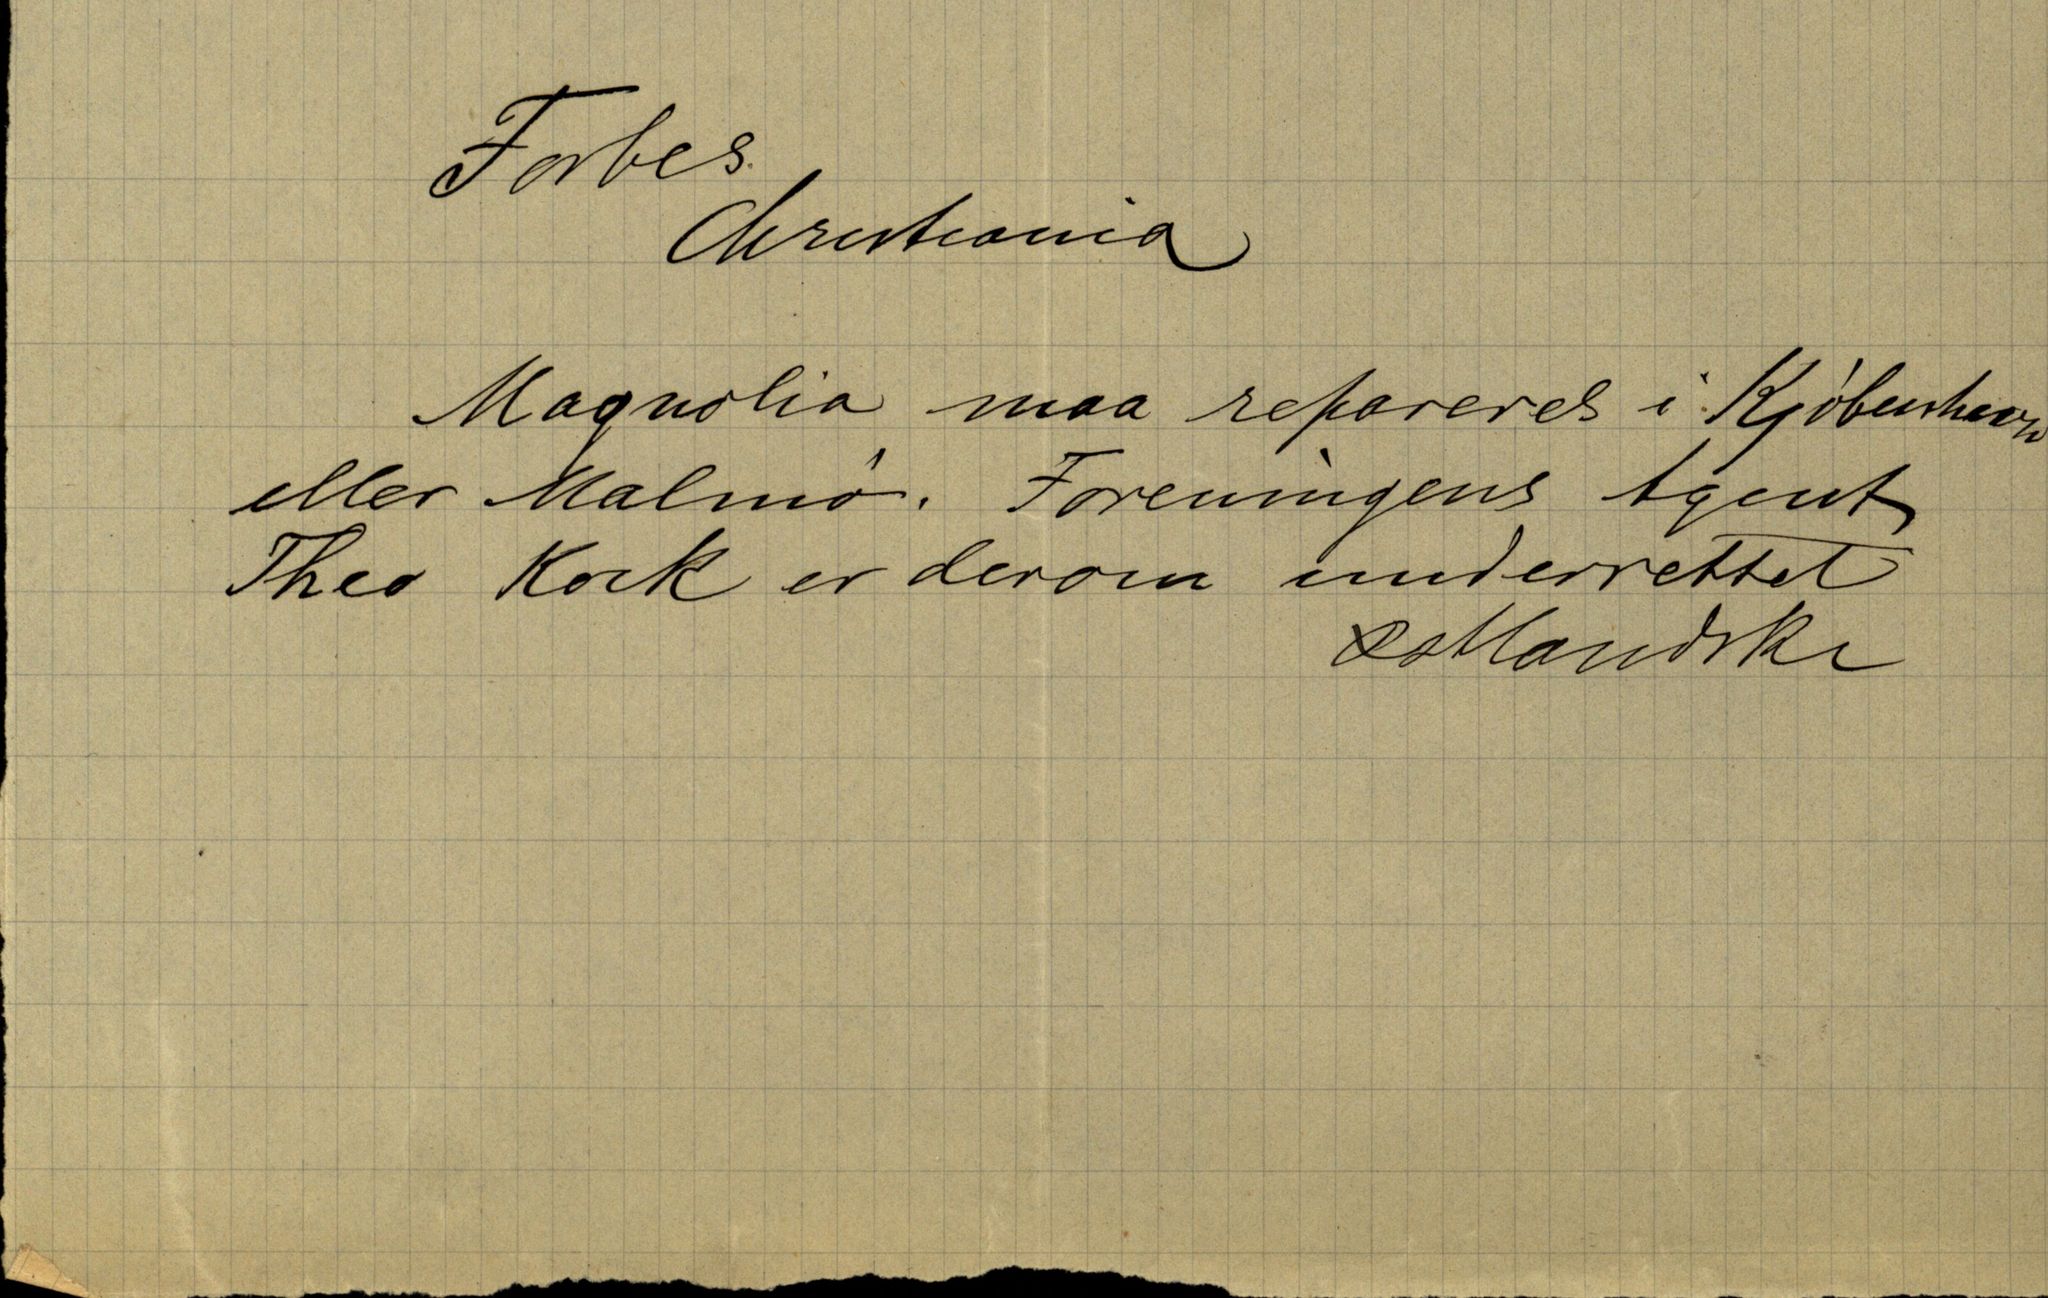 Forbes.
Christiania
Magnolia maa repareres i Kjöbenhavn
eller Malmö. Foreningens Agent
Theo Kock er derom underrettet
Østlandske